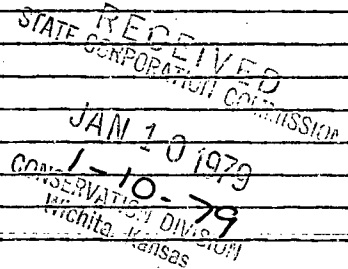 RECEIVED
STATE CORPORATION COMMISSION
JAN 10 1979
1-10-79
CONSERVATION DIVISION
Wichita, Kansas